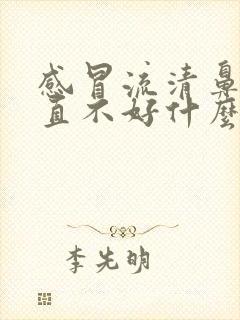 感冒流清鼻
直不好什麼
李先明